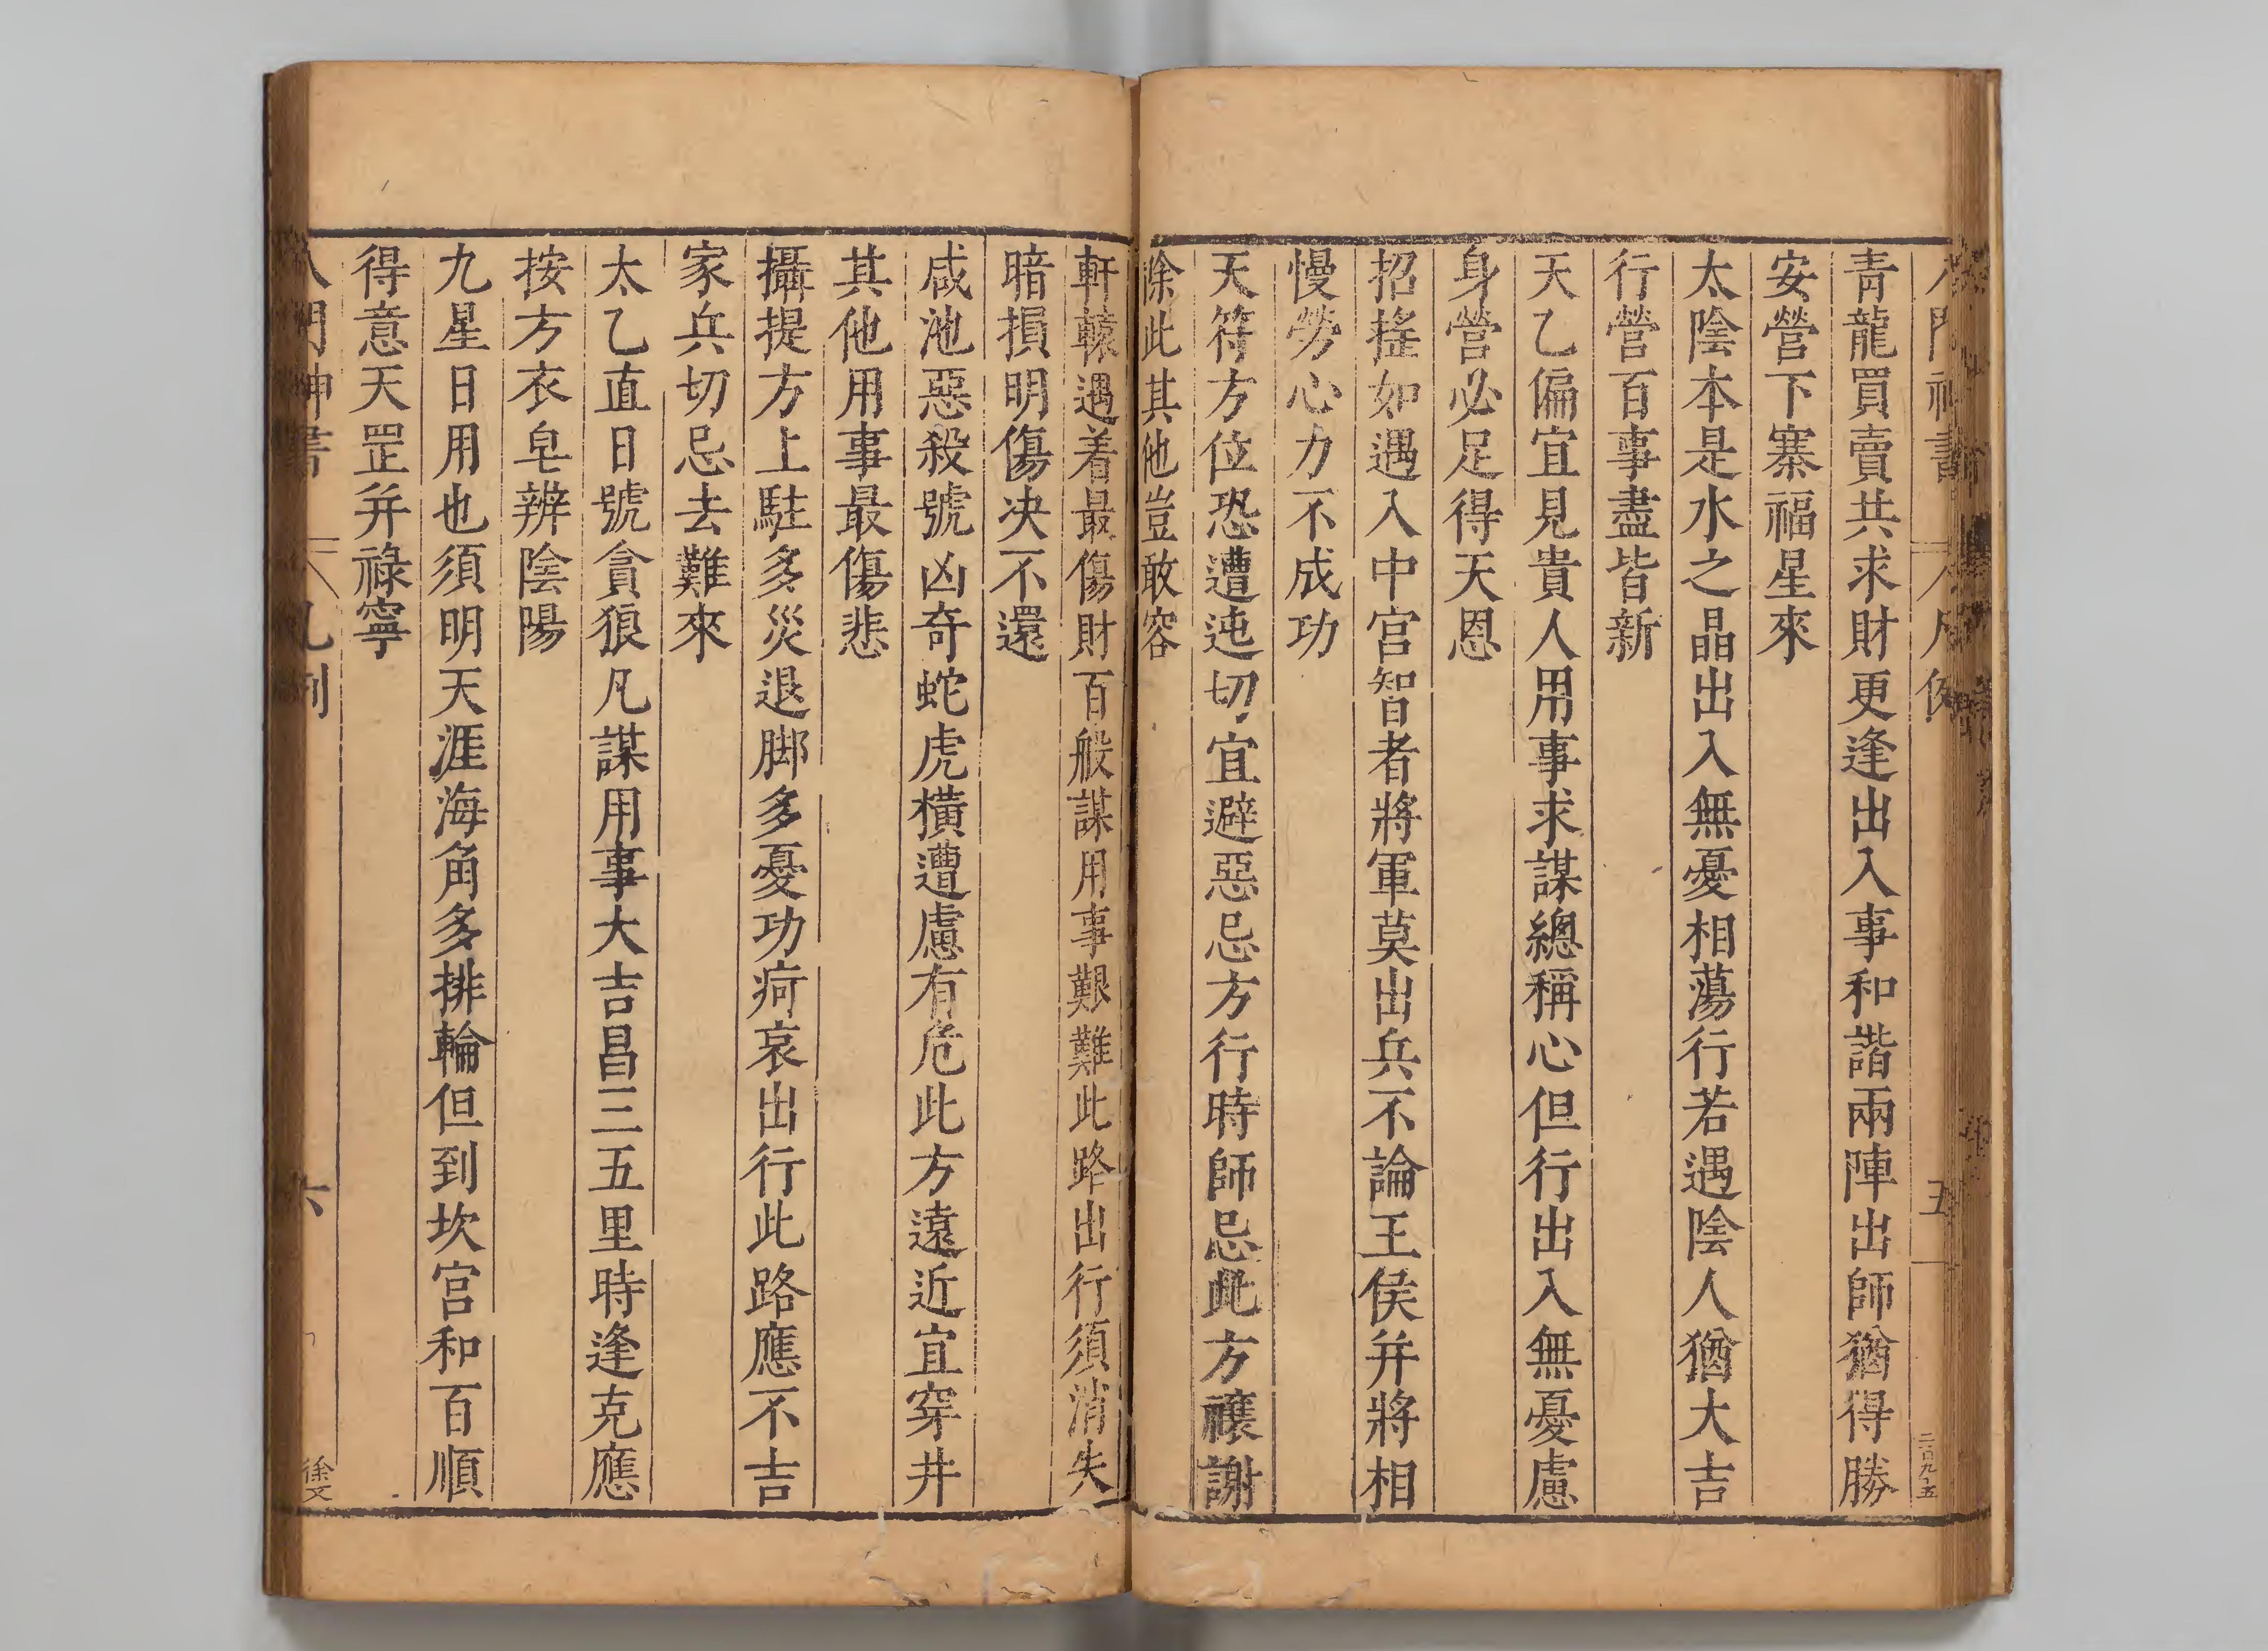 八門神書
凡例
五
二百九十五
青龍買賣共求財更逢出入事和諧兩陣出師猶得勝
安營下寨福星來
太陰本是水之晶出入無憂相蕩行若遇陰人猶大吉
行營百事盡皆新
天乙偏宜見貴人用事求謀總稱心但行出入無憂慮
身營必足得天恩
招搖如遇入中宮智者將軍莫出兵不論王侯并將相
慢勞心力不成功
天符方位恐遭迍切宜避惡忌方行時師忌此方禳謝
除此其他豈敢容
軒轅遇着最傷財百般謀用事艱難此路出行須消失
暗損明傷決不還
咸池惡殺號凶奇蛇虎橫遭慮有危此方遠近宜穿井
其他用事最傷悲
攝提方上駐多災退脚多憂功疴哀出行此路應不吉
家兵切忌去難來
太乙直日號貪狼凡謀用事大吉昌三五里時逢克應
按方衣皂辨陰陽
九星日用也須明天涯海角多排輪但到坎宮和百順
得意天罡并祿寧
八門神書
凡例
六
徐文